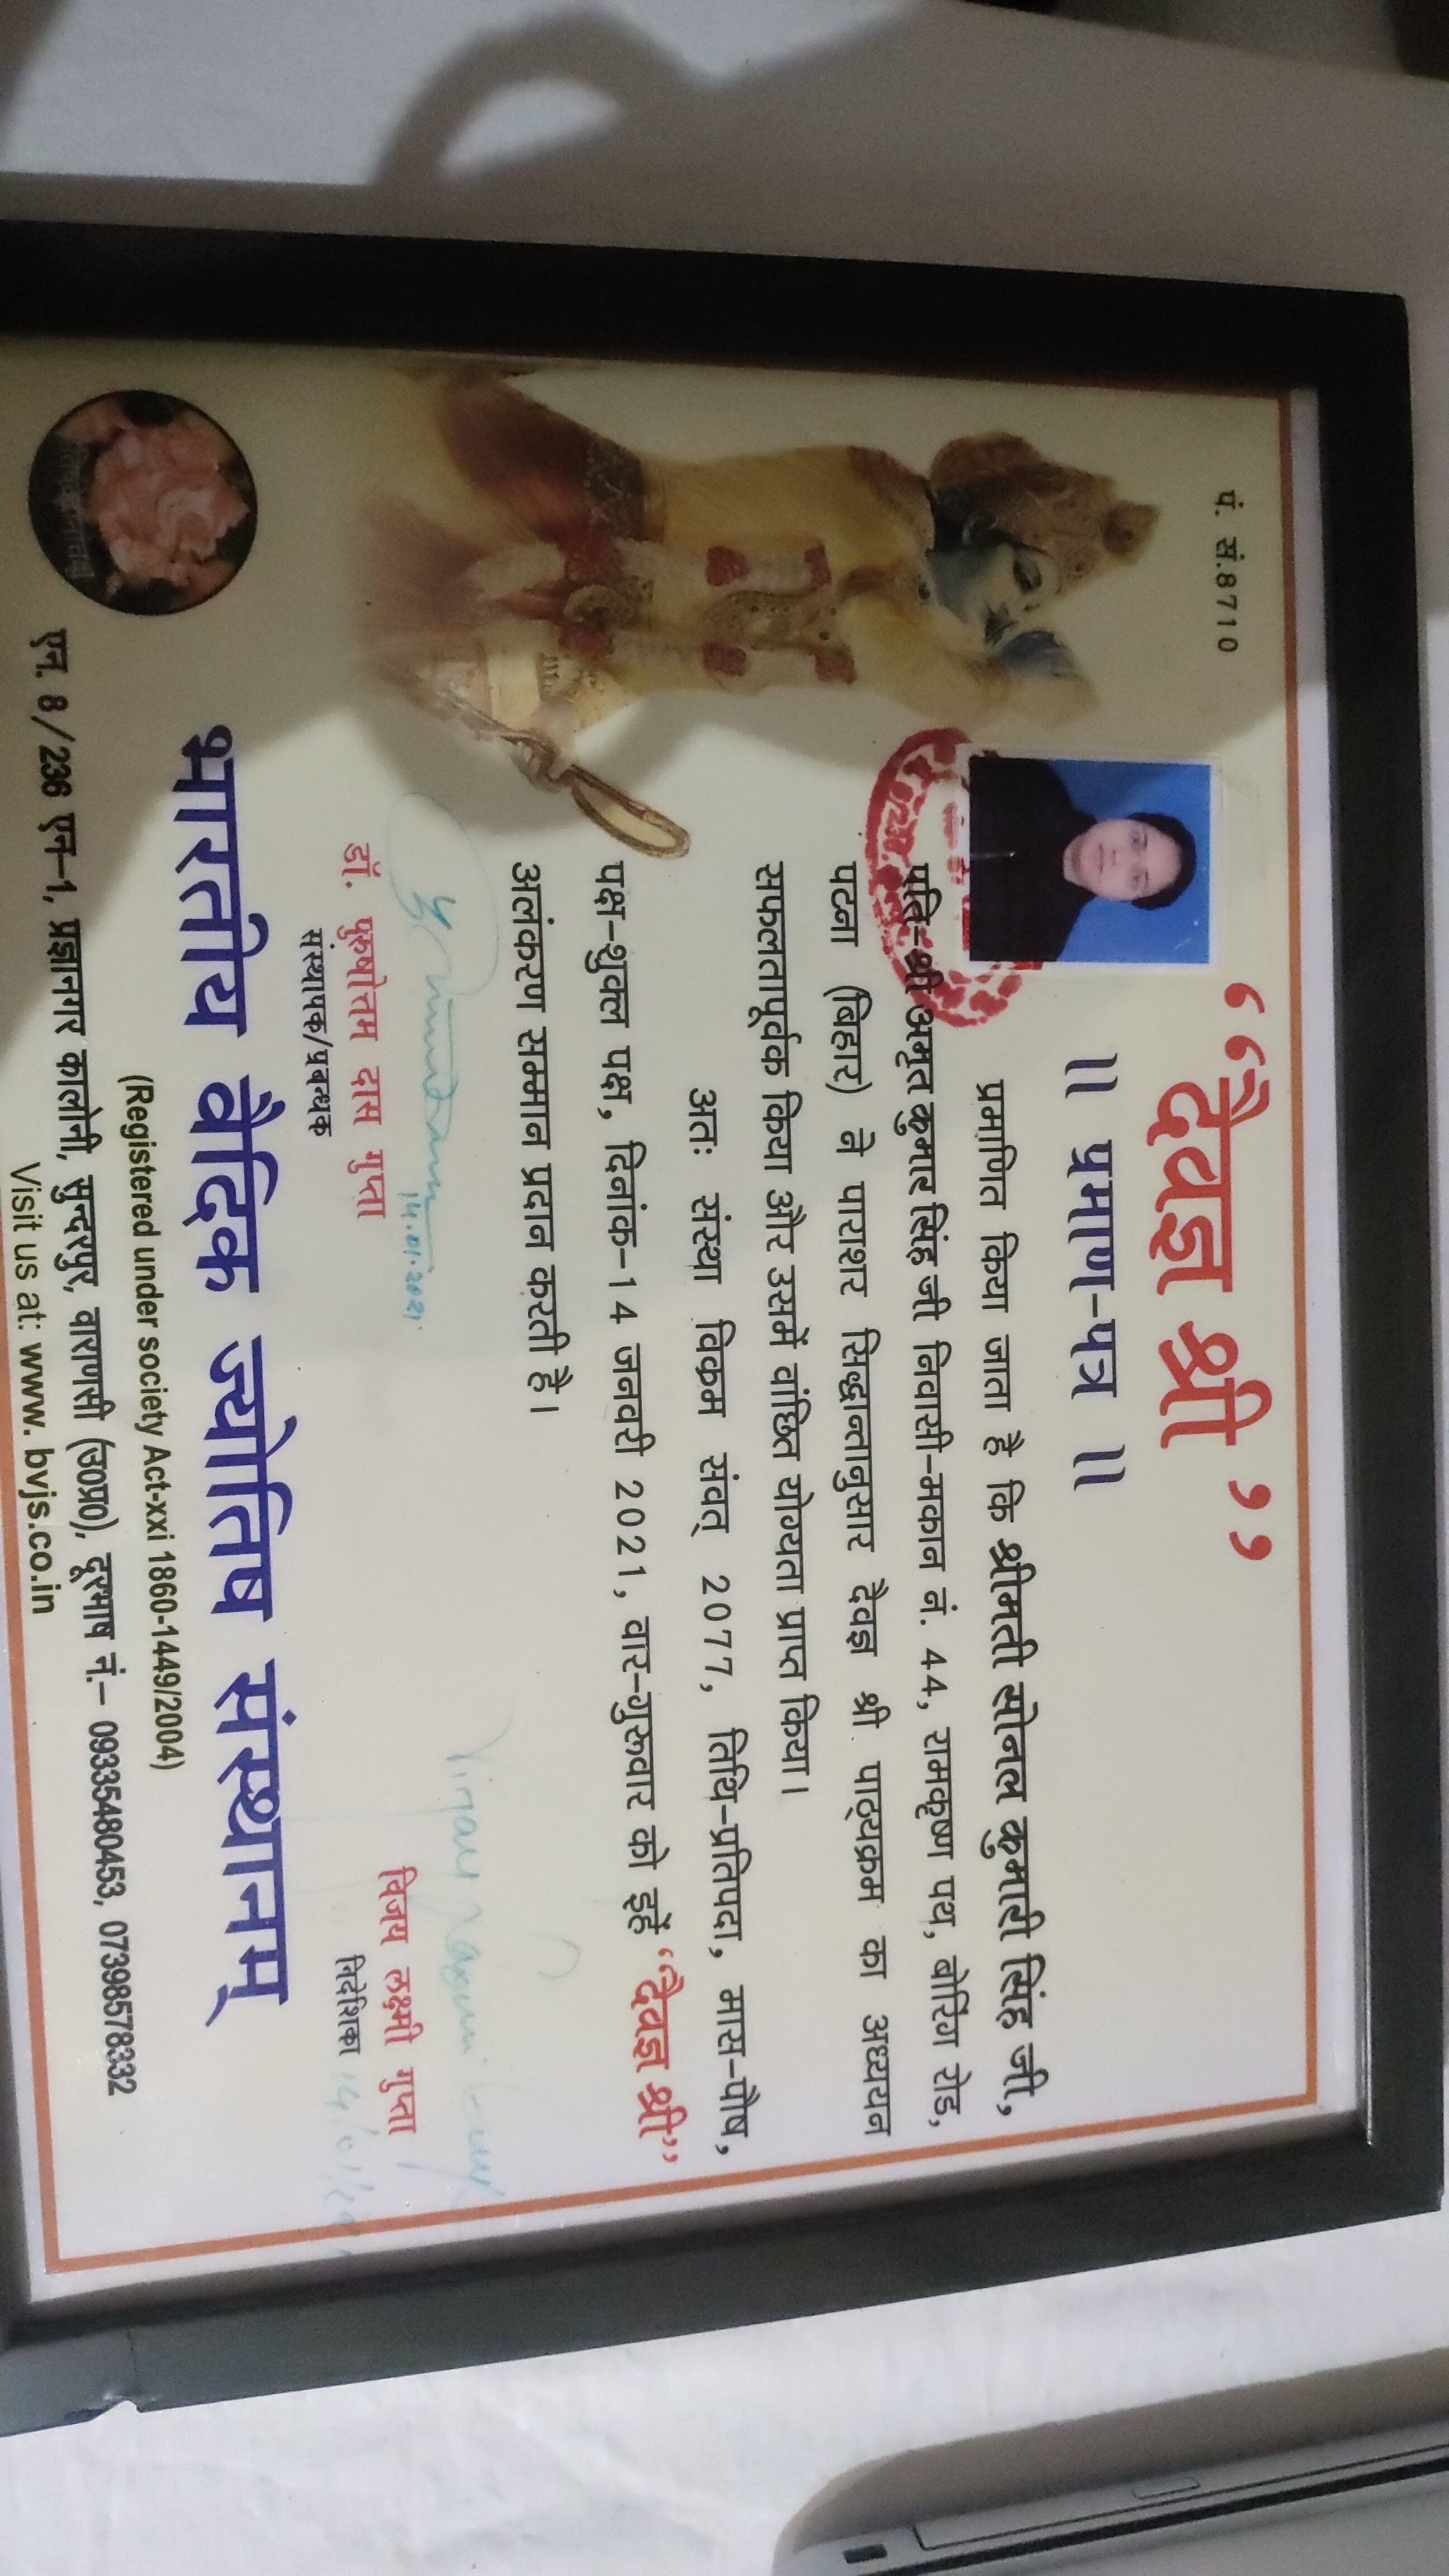 पं. सं.8710
“दैवज्ञ श्री”
॥ प्रमाण-पत्र ॥
प्रमाणित किया जाता है कि श्रीमती सोनल कुमारी सिंह जी,
पति-श्री अमृत कुमार सिंह जी निवासी-मकान नं. 44, रामकृष्ण पथ, बोरिंग रोड,
पटना (बिहार) ने पाराशर सिद्धान्तानुसार दैवज्ञ श्री पाठ्यक्रम का अध्ययन
सफलतापूर्वक किया और उसमें वांछित योग्यता प्राप्त किया।
अतः संस्था विक्रम संवत् 2077, तिथि-प्रतिपदा, मास-पौष,
पक्ष-शुक्ल पक्ष, दिनांक-14 जनवरी 2021, वार-गुरूवार को इन्हें “दैवज्ञ श्री”
अलंकरण सम्मान प्रदान करती है।
14.01.2021
डॉ. पुरुषोत्तम दास गुप्ता
संस्थापक/प्रबन्धक
विजय लक्ष्मी गुप्ता
निदेशिका
भारतीय वैदिक ज्योतिष संस्थानम्
(Registered under society Act-xxi 1860-1449/2004)
एन. 8/236 एन-1, प्रज्ञानगर कालोनी, सुन्दरपुर, वाराणसी (उ0प्र0), दूरभाष नं.- 09335480453, 07398578332
Visit us at: www. bvjs.co.in